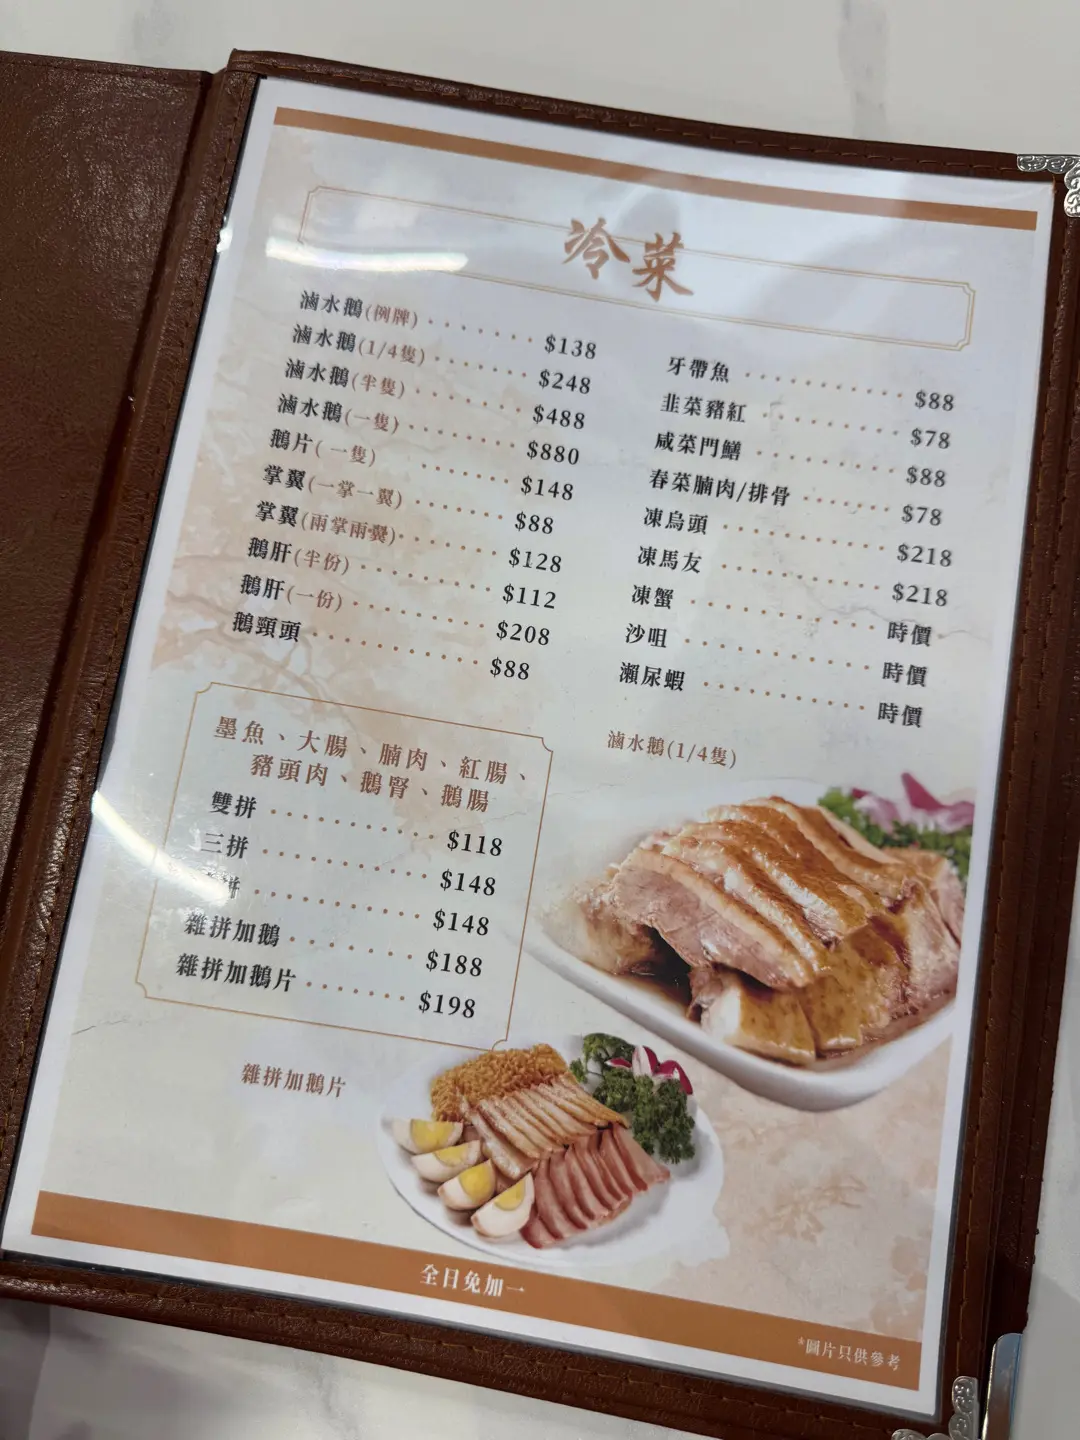 冷菜
滷水鵝(例牌) $138
滷水鵝(1/4隻) $248
滷水鵝(半隻) $488
滷水鵝(一隻) $880
鵝片(一隻) $148
掌翼(一掌一翼) $88
掌翼(兩掌兩翼) $128
鵝肝(半份) $112
鵝肝(一份) $208
鵝頸頭 $88
墨魚、大腸、腩肉、紅腸、
豬頭肉、鵝腎、鵝腸
雙拼 $118
三拼 $148
拼 $148
雜拼加鵝 $188
雜拼加鵝片 $198
雜拼加鵝片
牙帶魚 $88
韭菜豬紅 $78
咸菜門鱔 $88
春菜腩肉/排骨 $78
凍烏頭 $218
凍馬友 $218
凍蟹 時價
沙咀 時價
瀨尿蝦 時價
滷水鵝(1/4隻)
全日免加一
*圖片只供參考